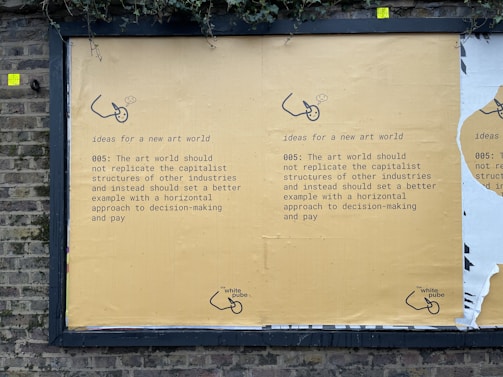 ideas for a new art world
005: The art world should
not replicate the capitalist
structures of other industries
and instead should set a better
example with a horizontal
approach to decision-making
and pay
the
white
pube
ideas for a new art world
005: The art world should
not replicate the capitalist
structures of other industries
and instead should set a better
example with a horizontal
approach to decision-making
and pay
the
white
pube
ideas
005:
not r
struct